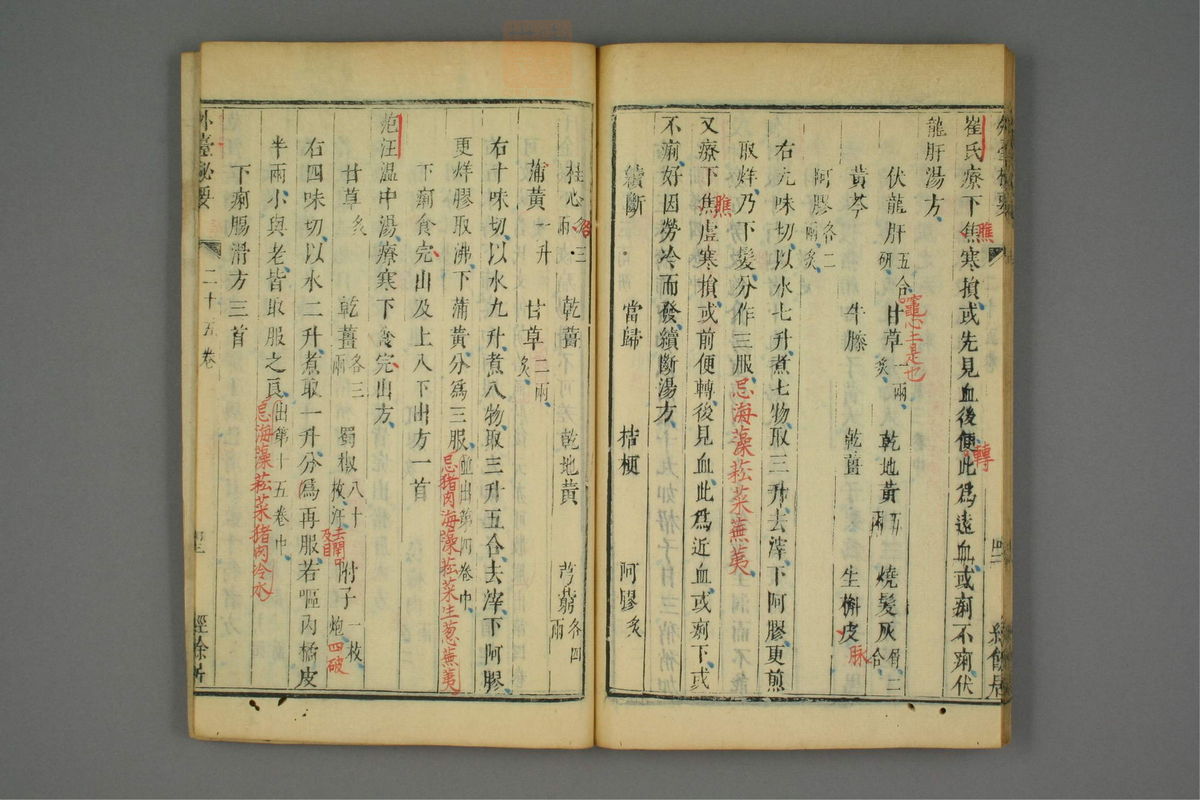 崔氏療下焦寒損或先見血後便此爲遠血或痢不痢伏
龍肝湯方
伏龍肝五合研 甘草一兩炙 乾地黃五兩 燒髮灰二合
黃芩 牛膝 乾薑 生槲皮
阿膠各二兩炙
右九味切以水七升煮七物取三升去滓下阿膠更煎
取烊乃下髮分作三服忌海藻菘菜蕪荑
又療下焦虛寒損或前便轉後見血此爲近血或痢下或
不痢好因勞冷而發續斷湯方
續斷 當歸 桔梗 阿膠炙
桂心各三兩 乾薑 乾地黃 芎藭各四兩
蒲黃一升 甘草二兩炙
右十味切以水九升煮八物取三升五合去滓下阿膠
更烊膠取沸下蒲黃分爲三服並出第四卷中忌猪肉海藻菘菜生葱蕪荑
下痢食完出及上入下出方一首
范汪溫中湯療寒下食完出方
甘草炙 乾薑各三兩 蜀椒八十枚汗去閉口及目 附子一枚炮四破
右四味切以水二升煮取一升分爲再服若嘔內橘皮
半兩小與老皆取服之良出第十五卷中忌海藻菘菜猪肉冷水
下痢腸滑方三首
外臺祕要 二十五卷 經餘居
瞧
竈心土是也
轉
脉
瞧